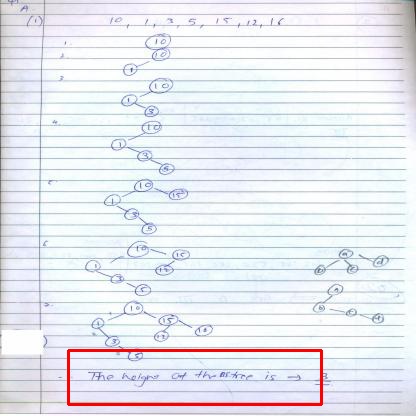 A.
(1) 10, 1, 3, 5, 15, 12, 16
1. 10
2. 10
1
3. 10
1
3
4. 10
1
3
5
5. 10
1 15
3
5
6. 10
1 15
3 12
5
a
b c d
a
b c d
7. 10
1 15
3 12 16
5
The height of the BStree is → 3